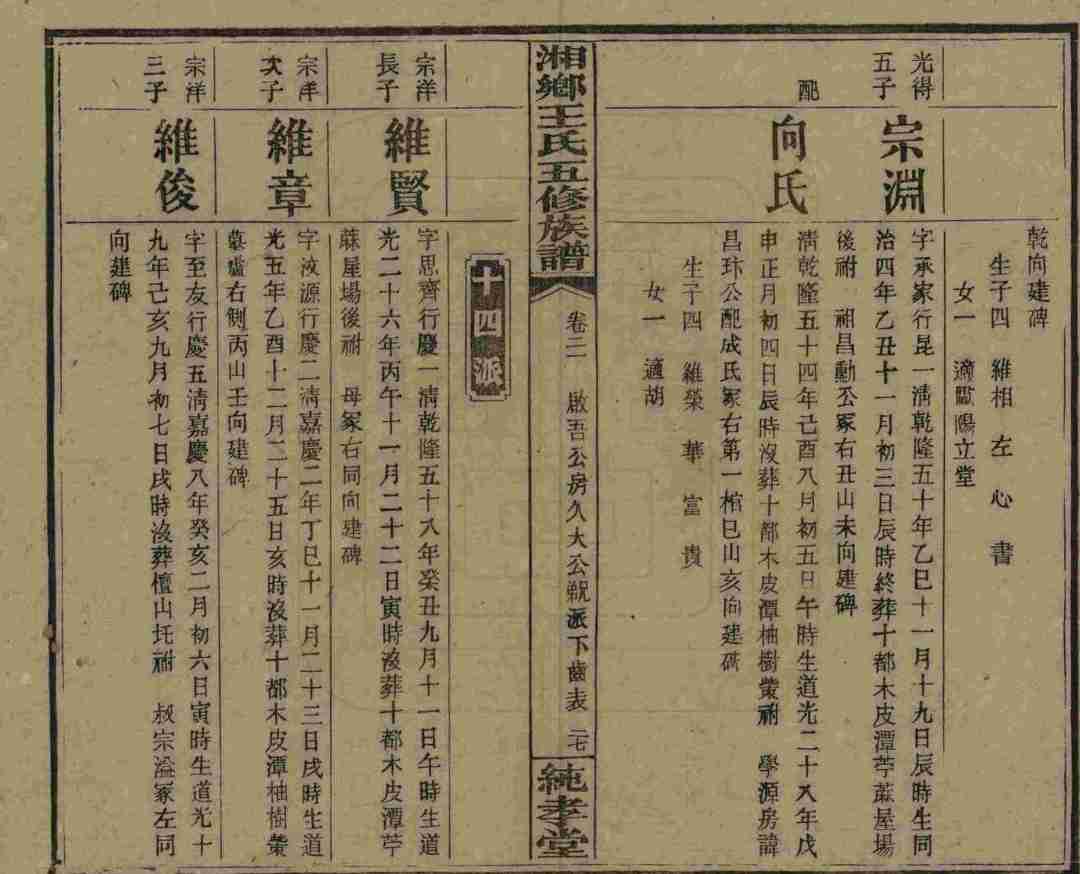 乾向建碑
生子四 維相 左 心 書
女一 適歐陽立堂
光得
五子
宗淵
字承家行昆一清乾隆五十年乙巳十一月十九日辰時生同
治四年乙丑十一月初三日辰時終葬十都木皮潭苧蔴屋場
後祔 祖昌勳公冢右丑山未向建碑
配
向氏
清乾隆五十四年己酉八月初五日午時生道光二十八年戊
申正月初四日辰時沒葬十都木皮潭柚樹塋祔 學源房諱
昌玤公配成氏冢右第一棺巳山亥向建碑
生子四 維榮 華 富 貴
女一 適胡
湘鄉王氏五修族譜
卷三 啟吾公房久大公覲派下齒表 二七
純孝堂
十四派
宗洋
長子
維賢
字思齊行慶一清乾隆五十八年癸丑九月十一日午時生道
光二十六年丙午十一月二十二日寅時沒葬十都木皮潭苧
蔴屋場後祔 母冢右同向建碑
宗洋
次子
維章
字液源行慶二清嘉慶二年丁巳十一月二十三日戌時生道
光五年乙酉十二月二十五日亥時沒葬十都木皮潭柚樹塋
墓廬右側丙山壬向建碑
宗洋
三子
維俊
字至友行慶五清嘉慶八年癸亥二月初六日寅時生道光十
九年己亥九月初七日戌時沒葬檀山圫祔 叔宗溢冢左同
向建碑